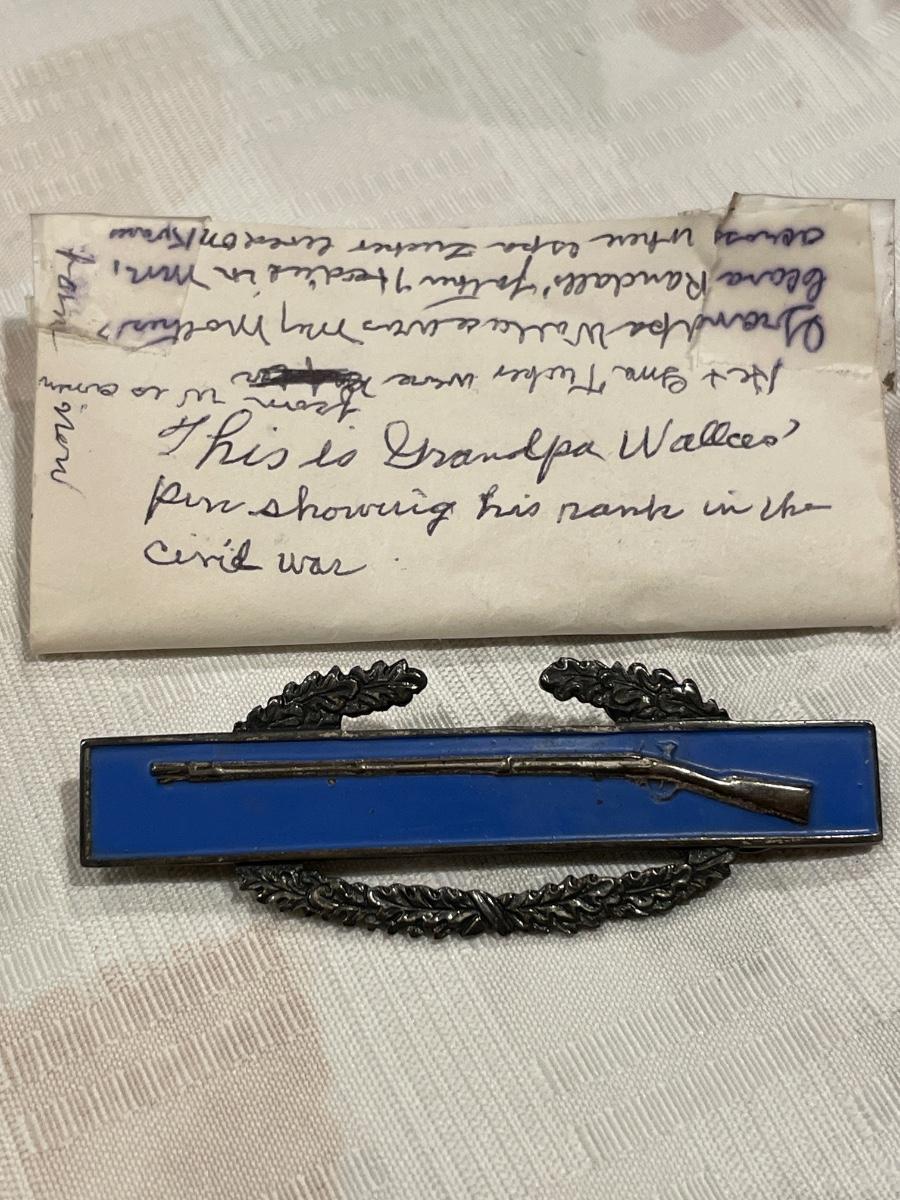 This is Grandpa Wallaces'
Pin showing his rank in the
Civil war.
Grandpa Wallace was my Mother's?
Clara Randalls' father & died in Mn,
across when Espa Tucker lived on
He + Gma Tucker were
from Wisconsin
now
farm